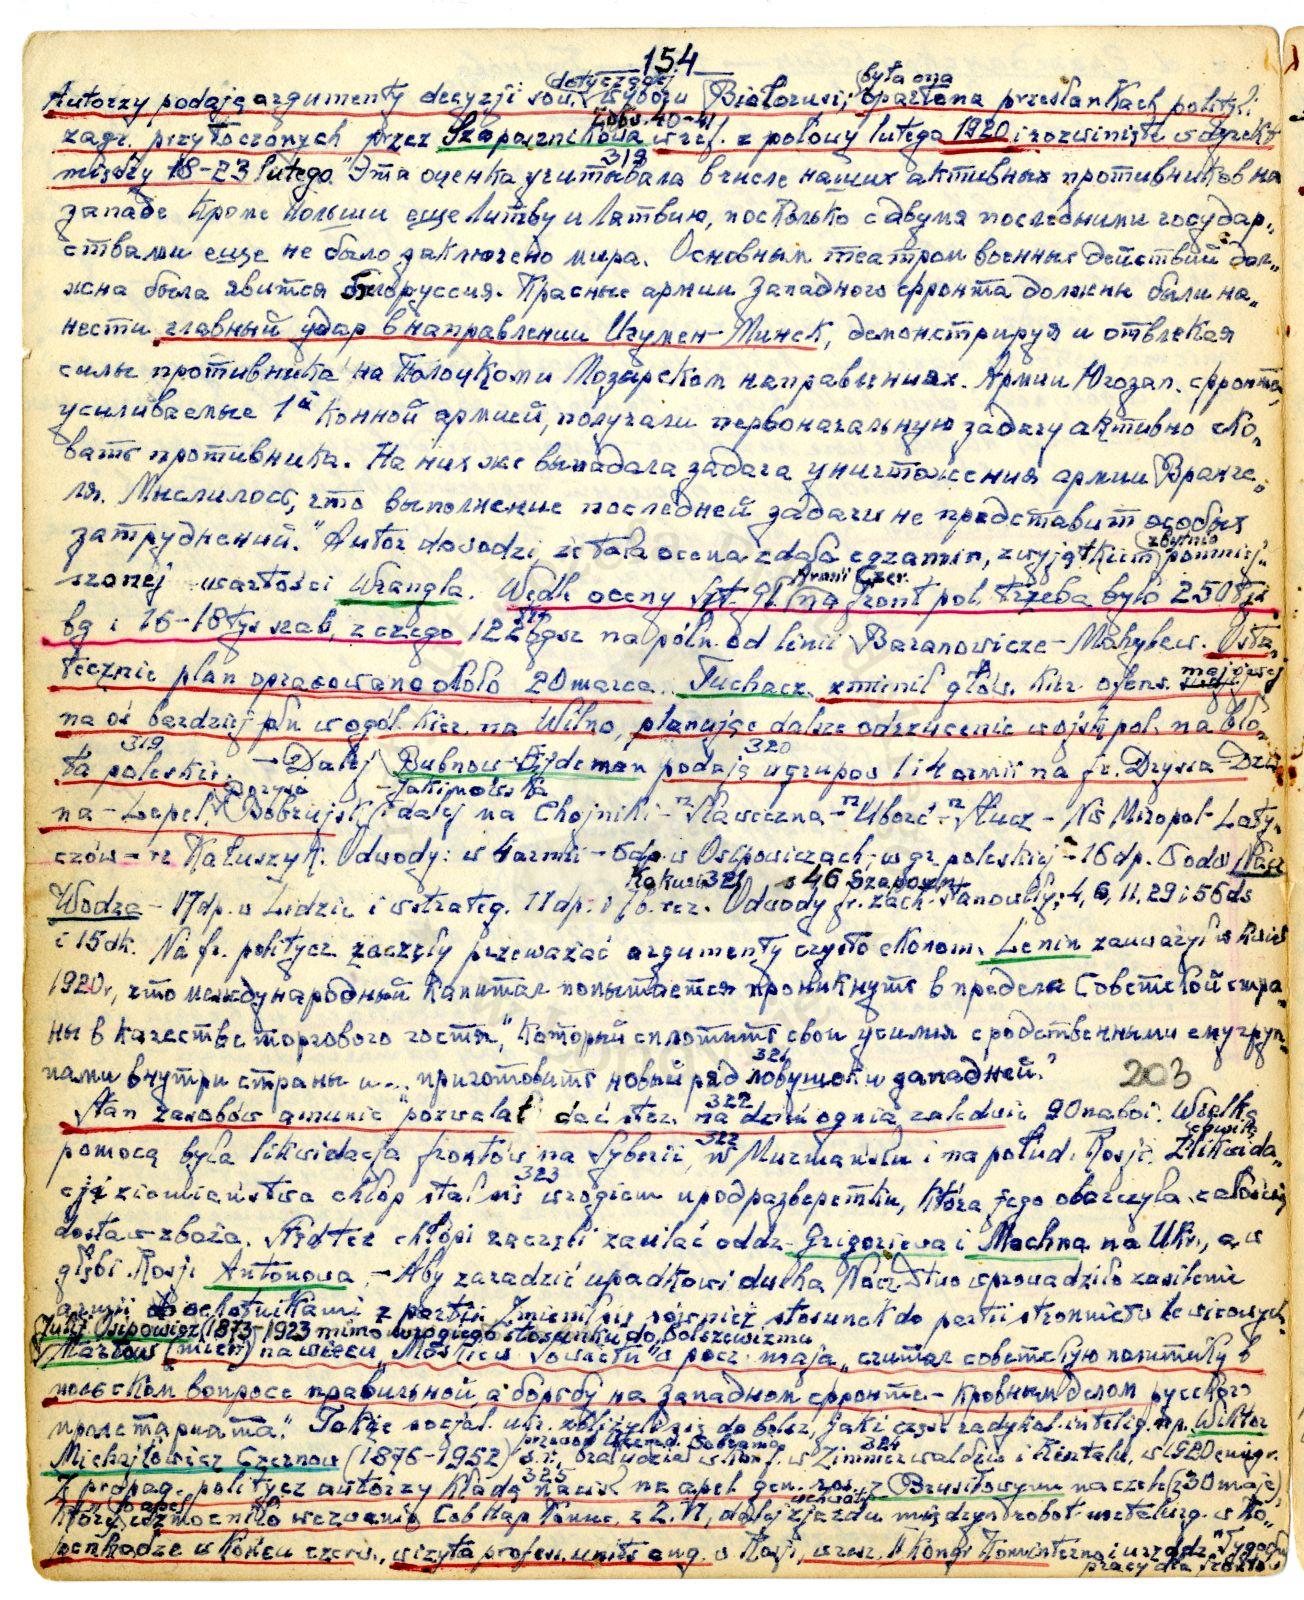 154
Autorzy podają argumenty decyzji sow. dotyczącej wyboru Białorusi; była ona oparta na przesłankach polityki
zagr. przytoczonych przez Szaposznikowa w ref. z połowy lutego 1920 i rozwinięte w dyrekt.
między 18-23 lutego. 318 "Эта оценка учитывала в числе наших активных противников на
западе кроме Польши еще Литву и Латвию, поскольку с двумя последними государ„
ствами еще не было заключено мира. Основным театром военных действий дол„
жна была явится Белоруссия. Красные армии Западного фронта должны были на„
нести главный удар в направлении Игумен-Минск, демонстрируя и отвлекая
силы противника на Полоцком и Мозырском направлениях. Армии Югозап. фронта,
усиливаемые 1й Конной армией, получали первоначальную задачу активно ско„
вать противника. На них же выпадала задача уничтожения армии Вранге„
ля. Мыслилось, что выполнение последней задачи не представит особых
затруднений." Autor dowodzi, że taka ocena zdała egzamin, z wyjątkiem zbytnio pomniej„
szonej wartości Wrangla. Wedle oceny Szt. Gł. Armii Czer. na front pol. trzeba było 250 tys
bg i 16-18 tys szab, z czego 122 tys bg sz na półn. od linii Baranowicze-Mohylew. Osta„
tecznie plan opracowano około 20 marca. Tuchacz. zmienił głów. kier. ofens. mającej
na oś bardziej płn w ogól. kier. na Wilno, planując dalsze odrzucenie wojsk pol. na bło„
ta poleskie. 319 - Dalej Bubnow-Ejdeman podają 320 ugrupow 1 i 4 armii na fr. Dryssa-Dzi
na-Lepel- Borysa Bobrujsk, - Jakimowska i dalej na Chojniki - rz Sławeczna - rz Uborć - rz Słucz - NW Miropol - Laty„
czów - rz Kałuszyk. Odwody: w 4 armii - 6 dp. w Osipowiczach; w gr. poleskiej - 16 dp. W odw Nacz
Wodza - 17 dp. w Lidzie i w strateg. 11 dp. i 76. rez. Odwody fr. zach. stanowiły: 4, 6, 11, 29 i 56 ds
i 15 dk. Na fr. politycz zaczęły przeważać argumenty czysto ekonom. Lenin zauważył w kwiet
1920 r, что международный капитал попытается проникнуть в пределы Советской стра„
ны в качестве торгового гостя", который сплотить свои усилия с родственными ему груп„
пами внутри страны и... приготовить новый ряд ловушек и западней." 321 203
Stan zasobów amunic. pozwalał dać strz. na dzień ognia zaledwie 90 naboi. 322 Wielką
pomocą była likwidacja frontów na Syberii, w Murmańsku i na połud. Rosji. 322 Z likwida„
cją ziemiaństwa chłop stał się wrogiem prodrazwerstki, 323 która jego obarczyła całością
dostaw zboża. Stąd też chłopi zaczęli zasilać oddz. Grigoriewa i Machną na Ukr., a w
głębi Rosji Antonowa. - Aby zaradzić upadkowi ducha Nacz. D-two wprowadziło zasilenie
armii ochotnikami z partii. Zmienił się również stosunek do partii stronnictw lewicowych.
Julij Osipowicz (1873-1923 mimo wrogiego stosunku do bolszewizmu
Martow (mień) na wiecu „Moskiew. Sowietu" w pocz. maja „считал советскую политику в
польском вопросе правильной, а борьбу на Западном фронте - кровным делом русского
пролетариата." Także socjal. umiar. zbliżyli się do bolsz, jak i część radykal. intelig. np. Wiktor
Michajłowicz Czernow (1876-1952) s.r., brał udział w konf. w Zimmerwaldzie i Kientalu, w 1920 emigr.
Z propag. politycz autorzy kładą nacisk na apel gen. ros. z Brusiłowym na czele (30 maja),
który wzmocniło wezwanie Сов Нар Комис. z 2. VI, dalej uchwały zjazdu międzyn robot. metalurg. w Ko„
penhadze w końcu czerw., wizyta profes. units ang. w Rosji, wresz. II Kongr Kominternu i urządz. "Tygod
pracy dla frontu"